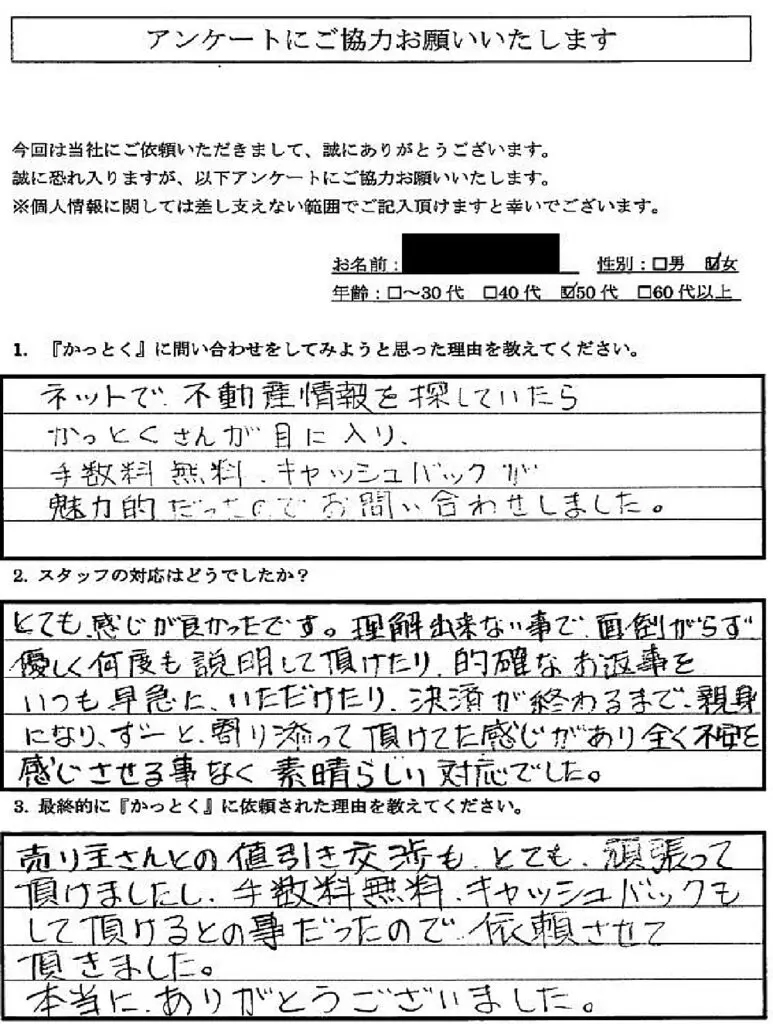 アンケートにご協力お願いいたします
今回は当社にご依頼いただきまして、誠にありがとうございます。
誠に恐れ入りますが、以下アンケートにご協力お願いいたします。
※個人情報に関しては差し支えない範囲でご記入頂けますと幸いでございます。
お名前: 性別:□男 ☑女
年齢:□~30代 □40代 ☑50代 □60代以上
1. 『かっとく』に問い合わせをしてみようと思った理由を教えてください。
ネットで、不動産情報を探していたら
かっとくさんが目に入り、
手数料無料、キャッシュバックが
魅力的だったのでお問い合わせしました。
2. スタッフの対応はどうでしたか?
とても、感じが良かったです。理解出来ない事で、面倒がらず
優しく何度も説明して頂けたり、的確なお返事を
いつも早急に、いただけたり、決済が終わるまで、親身
になり、ずーと、寄り添って頂けてた感じがあり全く不安を
感じさせる事なく素晴らしい対応でした。
3. 最終的に『かっとく』に依頼された理由を教えてください。
売り主さんとの値引き交渉も、とても、頑張って
頂けましたし、手数料無料、キャッシュバックも
して頂けるとの事だったので、依頼させて
頂きました。
本当に、ありがとうございました。